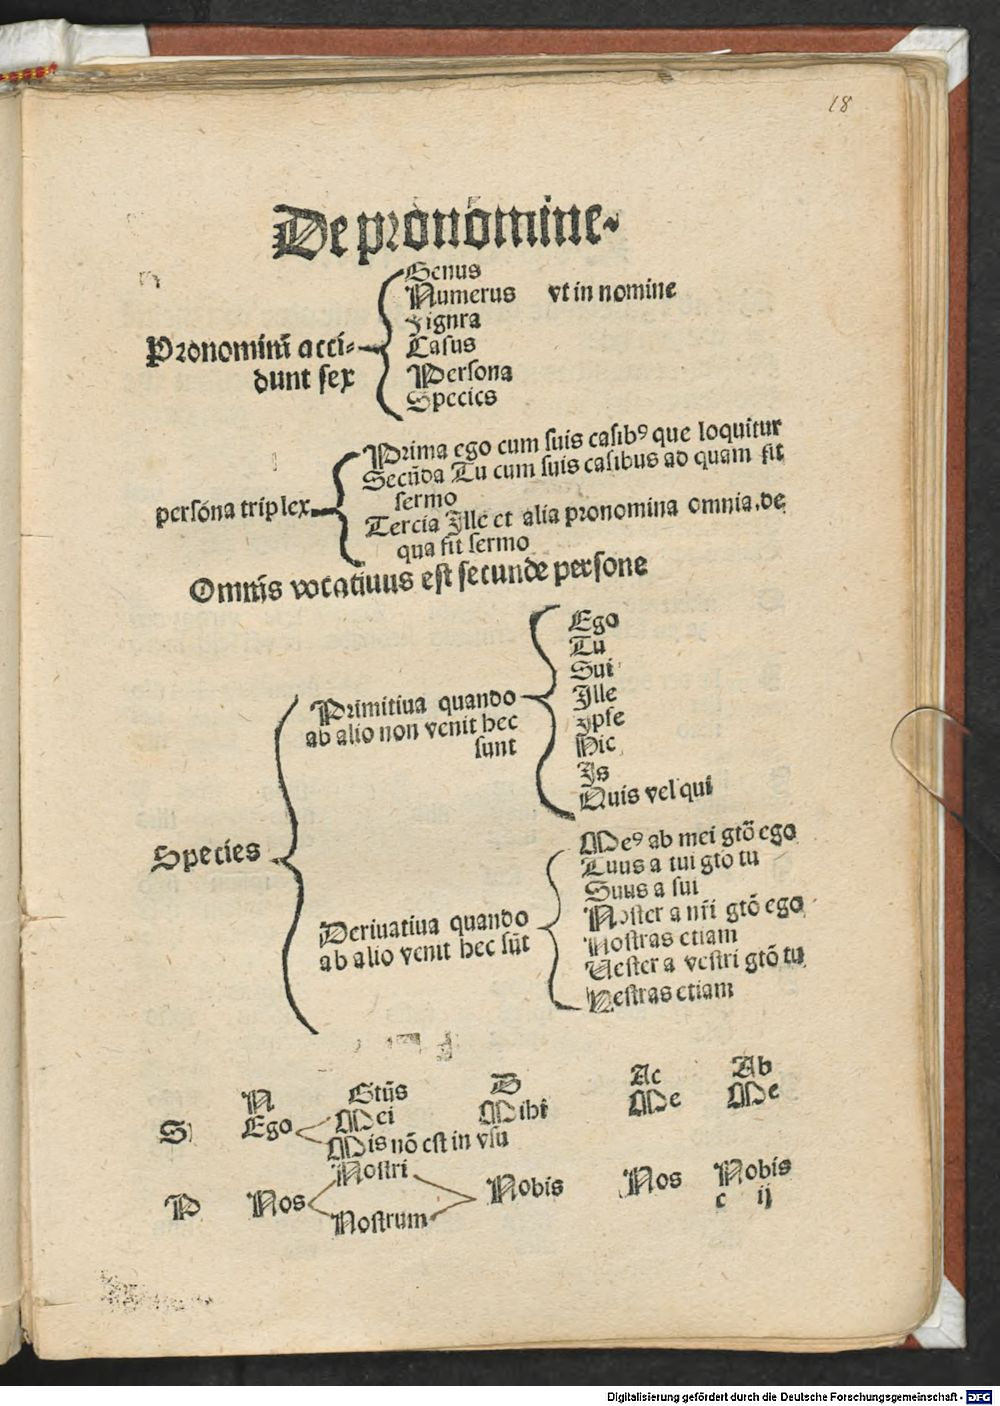 18
De pronomine.
Genus
Numerus vt in nomine
Fignra
Pronominū acci-
Casus
dunt sex
Persona
Species
Prima ego cum suis casibꝰ que loquitur
Secūda Tu cum suis casibus ad quam fit
sermo
persona triplex
Tercia Ille et alia pronomina omnia, de
qua fit sermo
Omnis vocatiuus est secunde persone
Ego
Tu
Sui
Primitiua quando
Ille
ab alio non venit hec
Ipse
sunt
Hic
Is
Quis vel qui
Species
Meꝰ ab mei gtō ego
Tuus a tui gto tu
Suus a sui
Deriuatiua quando
Noster a nr̄i gtō ego
ab alio venit hec sūt
Nostras etiam
Uester a vestri gtō tu
Vestras etiam
N Gtūs D Ac Ab
S Ego Mei Mihi Me Me
Mis nō est in vsu
Nostri
P Nos Nobis Nos Nobis
Nostrum
c ij
Digitalisierung gefördert durch die Deutsche Forschungsgemeinschaft - DFG